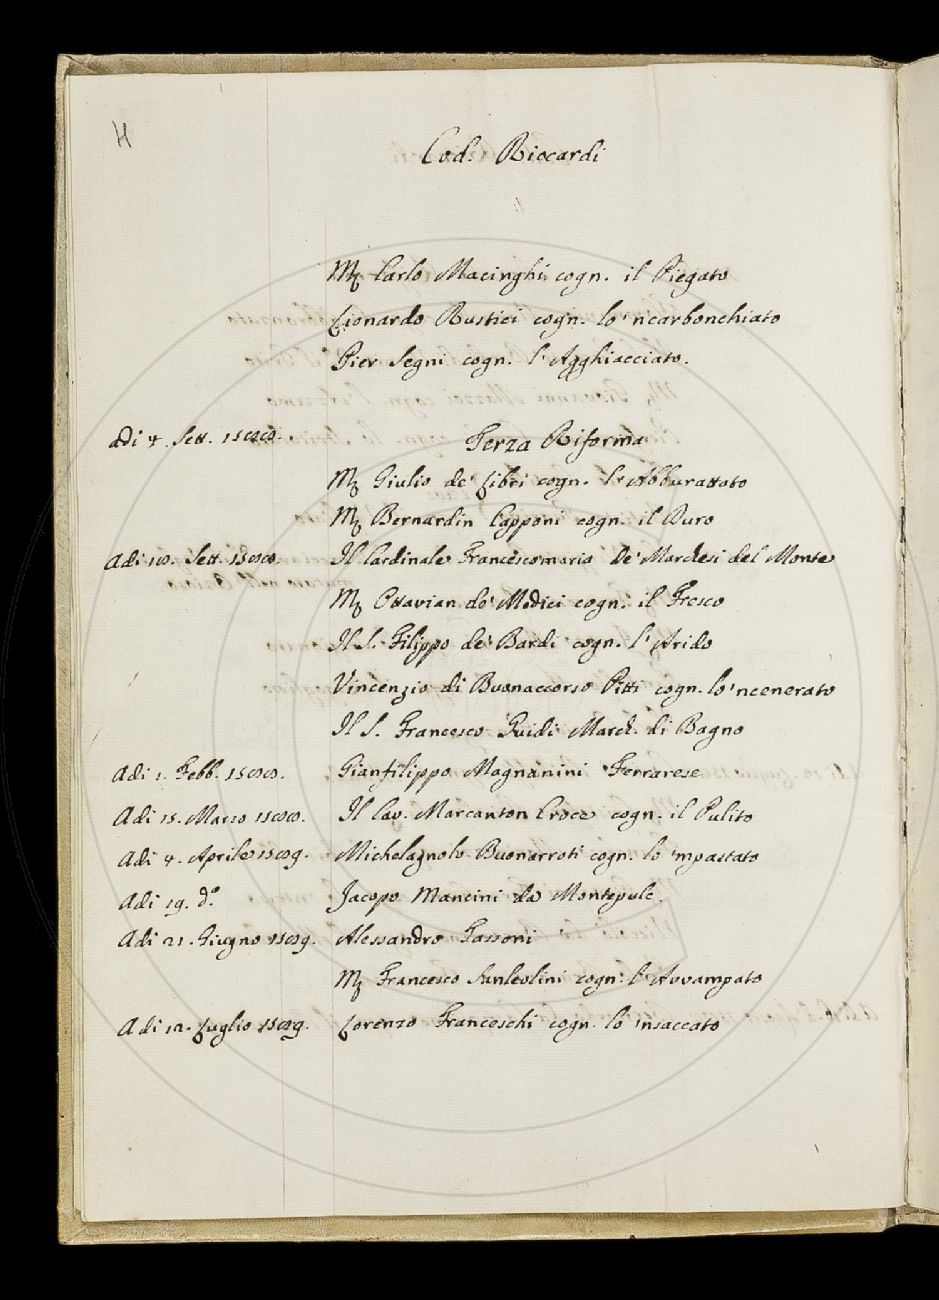 H
Cod. Riccardi
Mẓ Carlo Macinghi cogn. il Piegato
Lionardo Rustici cogn. lo 'ncarbonchiato
Pier Segni cogn. l'Agghiacciato.
adi 4. Sett. Terza Riforma
Mẓ Giulio de' Libri cogn. l'Abburattato
Mẓ Bernardin Capponi cogn. il Duro
Adi 10. Sett. Il Cardinale Francescomaria de' Marchesi del Monte
Mẓ Ottavian de' Medici cogn. il Fresco
Il S. Filippo de' Bardi cogn. l'Arido
Vincenzio di Buonaccorso Pitti cogn. lo 'ncenerato
Il S. Francesco Guidi March. di Bagno
Adi 1. Febb. Gianfilippo Magnanini Ferrarese
Adi 15. Marzo Il Cav. Marcanton Croce cogn. il Pulito
Adi 4. Aprile Michelagnolo Buonarroti cogn. lo 'mpastato
Adi 19. d.º Jacopo Mancini da Montepulc.
Adi 21. Giugno Alessandro Tassoni
Mẓ Francesco Sanleolini cogn. l'Avvampato
Adi 12. Luglio Lorenzo Franceschi cogn. lo 'nsaccato